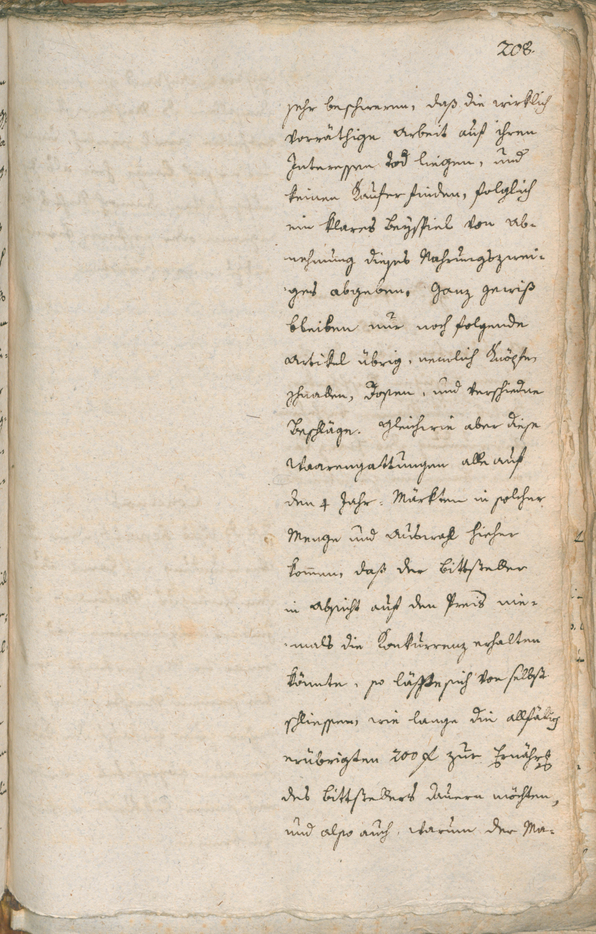 208.
sehr beschweren, daß die wirklich
vorräthige Arbeit auf ihren
Interessen tod liegen, und
keinen Kaufer finden, folglich
ein klares Beyspiel von Ab-
nehmung dieses Nahrungszwei-
ges abgeben. Ganz gewiß
bleiben nur noch folgende
Artikel übrig, nemlich Knöpfe,
Schnallen, Dosen, und verschiedne
Beschläge. Gleichwie aber diese
Waarengattungen alle auf
den 4 Jahr-Märkten in solcher
Menge und Auswahl hieher
kommen, daß der Bittsteller
in Absicht auf den Preis nie-
mals die Konkurrenz erhalten
könnte, so läßt sich von selbst
schliessen, wie lange die allfällig
erübrigten 200 f zur
des Bittstellers dauern möchten,
und also auch, warum der Ma-